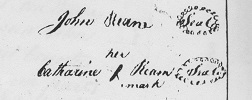 John Keane Seal
her
Catharine X Keam Seal
mark